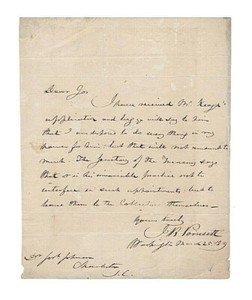 Dear Jos
I have received Mr
application and beg you will say to him
that I am disposed to do any thing in my
power for him; but that will not amount to
much. The Secretary of the Treasury says
that it is his invariable practice not to
interfere in such appointments, but to
leave them to the Collectors themselves—
yours truly
J. R. Poinsett
Washington March
Dr Jos Johnson
Charleston
S.C.